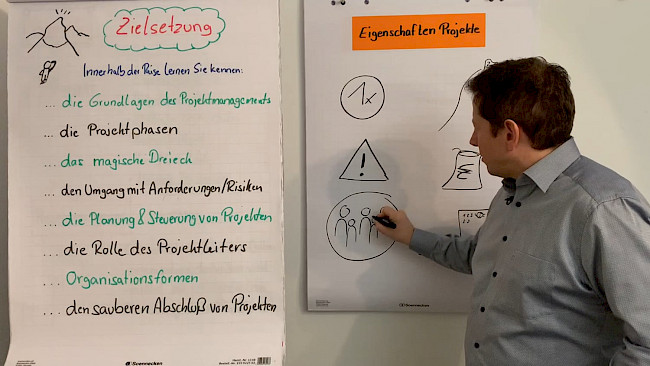 Zielsetzung
Innerhalb der Reise lernen Sie kennen:
... die Grundlagen des Projektmanagements
... die Projektphasen
... das magische Dreieck
... den Umgang mit Anforderungen/Risiken
... die Planung & Steuerung von Projekten
... die Rolle des Projektleiters
... Organisationsformen
... den sauberen Abschluß von Projekten
Soennecken
Eigenschaften Projekte
1x
!
€
Soennecken